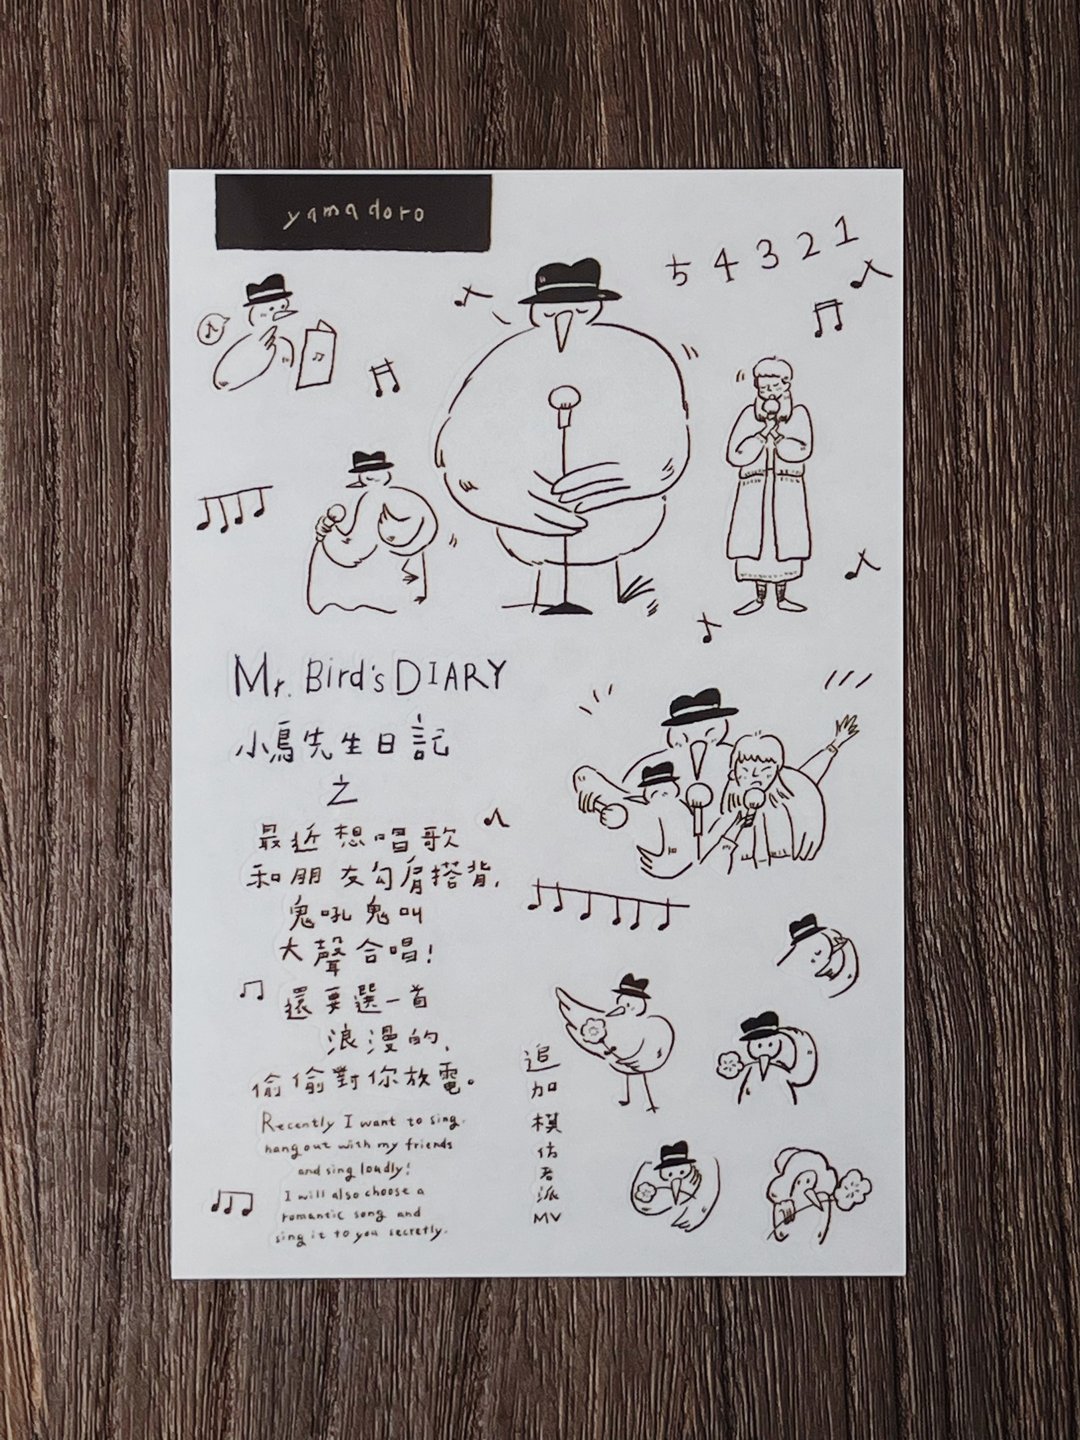 yamadoro
5 4 3 2 1
Mr. Bird's DIARY
小鳥先生日記
之
最近想唱歌
和朋友勾肩搭背,
鬼吼鬼叫
大聲合唱!
還要選一首
浪漫的,
偷偷對你放電。
Recently I want to sing,
hang out with my friends
and sing loudly!
I will also choose a
romantic song and
sing it to you secretly.
追
加
模
仿
吾
派
MV